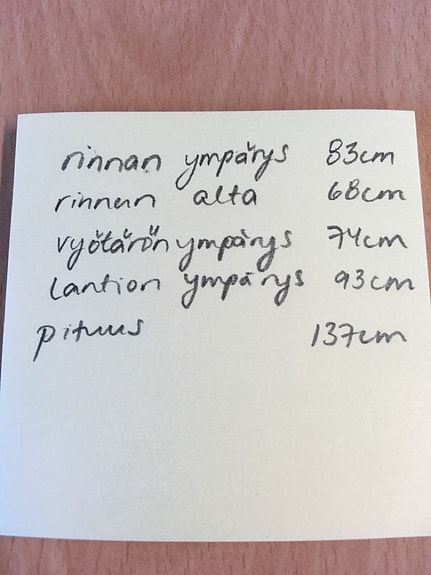 rinnan ympärys 83cm
rinnan alta 68cm
vyötärön ympärys 74cm
lantion ympärys 93cm
pituus 137cm